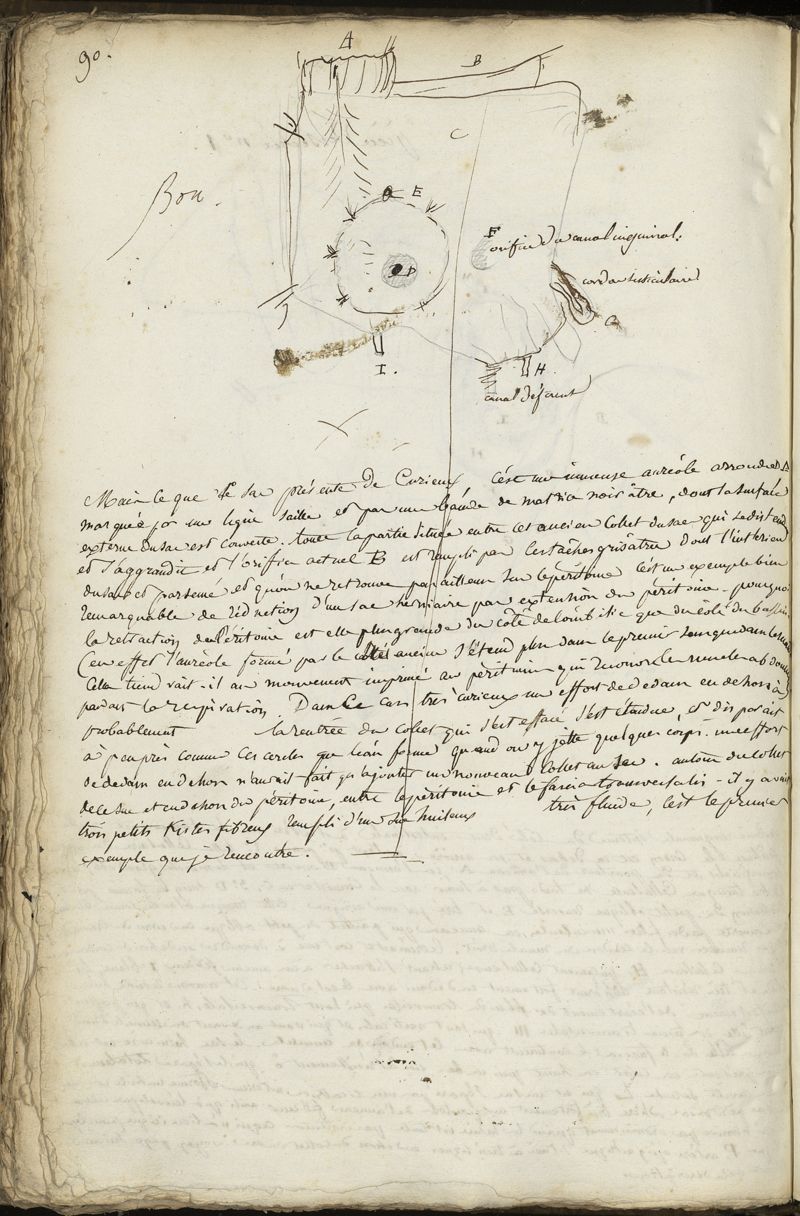 90.
A
B
C
Bon.
E
D
F
orifice du canal inguinal.
cordon testiculaire
G
H
I.
canal déférent
Mais ce que le sac présente de Curieux, c'est une immense auréole arrondie
marquée par une ligne saillie et par une bande de matière noirâtre, dont la surface
externe du sac est couverte. toute la partie située entre cet ancien Collet du sac qui se distend
et s'aggrandit et l'orifice actuel B est rempli par les tâches grisâtre dont l'intérieur
du sac est parsemé et qu'on ne retrouve pas ailleurs sur le péritoine c'est un exemple bien
remarquable de réduction d'un sac herniaire par extension du péritoine. pourquoi
la retraction du Péritoine est elle plus grande du côté de l'ombilic que du côté du bassin
(en effet l'auréole formé par le collet ancien s'étend plus dans le premier sens que dans le
Cela tiendrait-il au mouvement imprimé au péritoine qui
pendant la respiration. Dans ce cas très curieux un effort de dedans en dehors a
probablement la rentrée du collet qui s'est effacé s'est étendue, et disparait
à peu près comme ces cercles que l'eau forme quand on y jette quelques corps. un effort
de dedans en dehors n'aurait fait qu'ajouter un nouveau Collet au sac. autour du collet
de ce sac et en dehors du péritoine, entre le péritoine et le fascia transversalis - il y avait
trois petits Kistes fibreux rempli d'un suc huileux très fluide, c'est le premier
exemple que je rencontre.